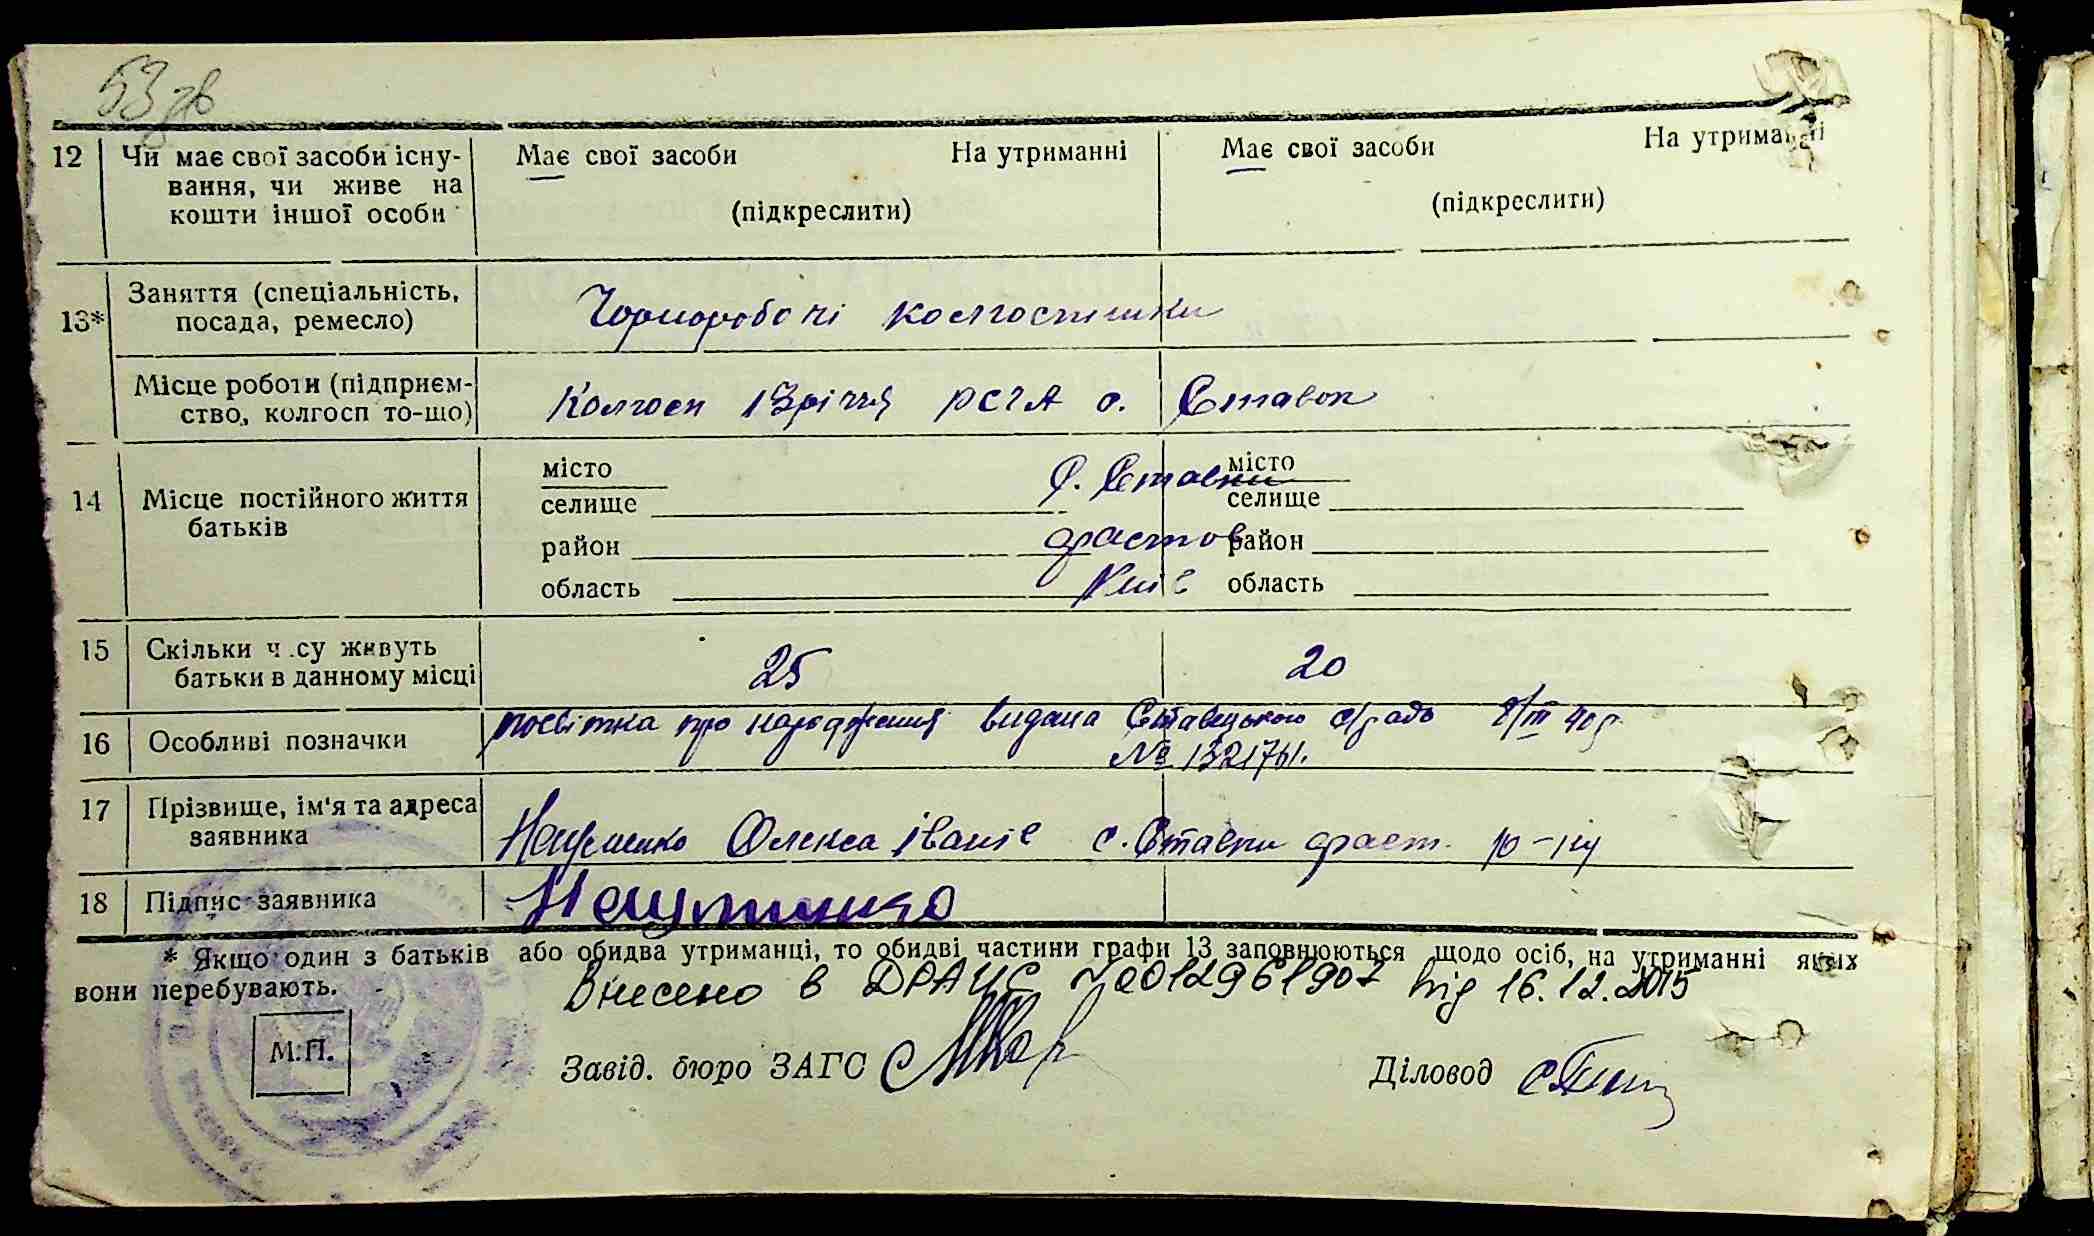 53 зв
12 Чи має свої засоби існу- Має свої засоби На утриманні Має свої засоби На утриманні
вання, чи живе на
кошти іншої особи (підкреслити) (підкреслити)
13* Заняття (спеціальність,
посада, ремесло) Чорноробочі колгоспники
Місце роботи (підприєм-
ство, колгосп то-що) Колгосп 13річчя РСЧА с. Ставок
14 Місце постійного життя
батьків
місто с. Ставки місто
селище селище
район Фастов район
область Київ область
15 Скільки часу живуть
батьки в данному місці 25 20
16 Особливі позначки посвітка про народження видана Ставецькою с/радою 8/III 40 р.
№ 1321761.
17 Прізвище, ім'я та адреса
заявника Олекса Іванів с. Ставки Фаст. р-ну
18 Підпис заявника
* Якщо один з батьків або обидва утриманці, то обидві частини графи 13 заповнюються щодо осіб, на утриманні яких
вони перебувають.
Внесено в ДРАЦС №0012961907 від 16.12.2015
М.П.
Завід. бюро ЗАГС Діловод